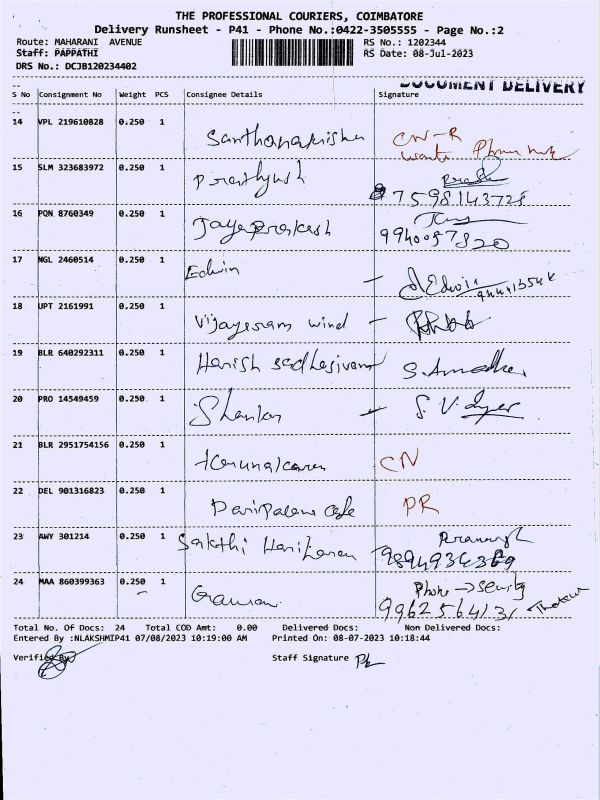 THE PROFESSIONAL COURIERS, COIMBATORE
Delivery Runsheet - P41 - Phone No.:0422-3505555 - Page No.:2
Route: MAHARANI AVENUE RS No.: 1202344
Staff: PAPPATHI RS Date: 08-Jul-2023
DRS No.: DCJB120234402
DOCUMENT DELIVERY
S No Consignment No Weight PCS Consignee Details Signature
14 VPL 219610828 0.250 1 CN-R
15 SLM 323683972 0.250 1 Prathyush
7598143728
16 PQN 8760349 0.250 1 Jayaprakash
9940057820
17 NGL 2460514 0.250 1 Edwin - Edwin
18 UPT 2161991 0.250 1 Vijayesram wind -
19 BLR 640292311 0.250 1 Harish sadhasivam
20 PRO 14549459 0.250 1 Shankar - S. V.
21 BLR 2951754156 0.250 1 Karunakaran CN
22 DEL 901316823 0.250 1 PR
23 AWY 301214 0.250 1 Sakthi Hariharan
9894934369
24 MAA 860399363 0.250 1 Phone →
9962564131
Total No. Of Docs: 24 Total COD Amt: 0.00 Delivered Docs: Non Delivered Docs:
Entered By :NLAKSHMIP41 07/08/2023 10:19:00 AM Printed On: 08-07-2023 10:18:44
Verified By Staff Signature